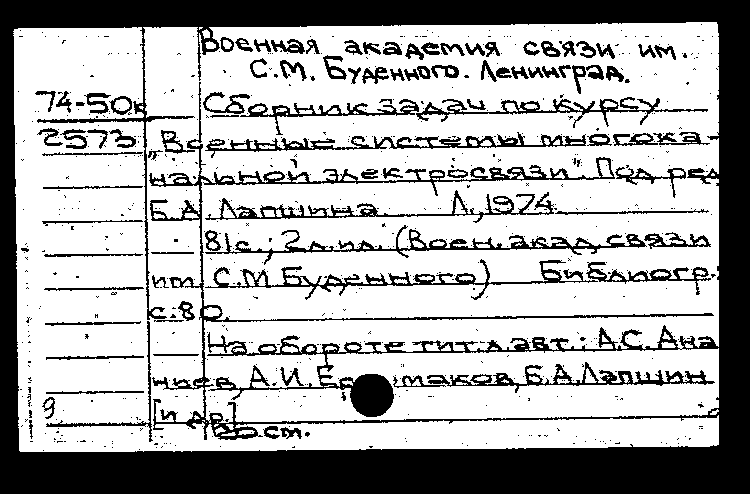 Военная академия связи им.
С.М. Буденного. Ленинград.
74-50к Сборник задач по курсу
2573 „Военные системы многока-
нальной электросвязи". Под ред
Б.А. Лапшина. Л., 1974.
81с.; 2л.ил. (Воен. акад. связи
им. С.М Буденного) Библиогр.:
с. 80.
На обороте тит. л. авт.: А.С. Ана
ньев, А.И. Б.А. Лапшин
9 [и др.]
20 ст.